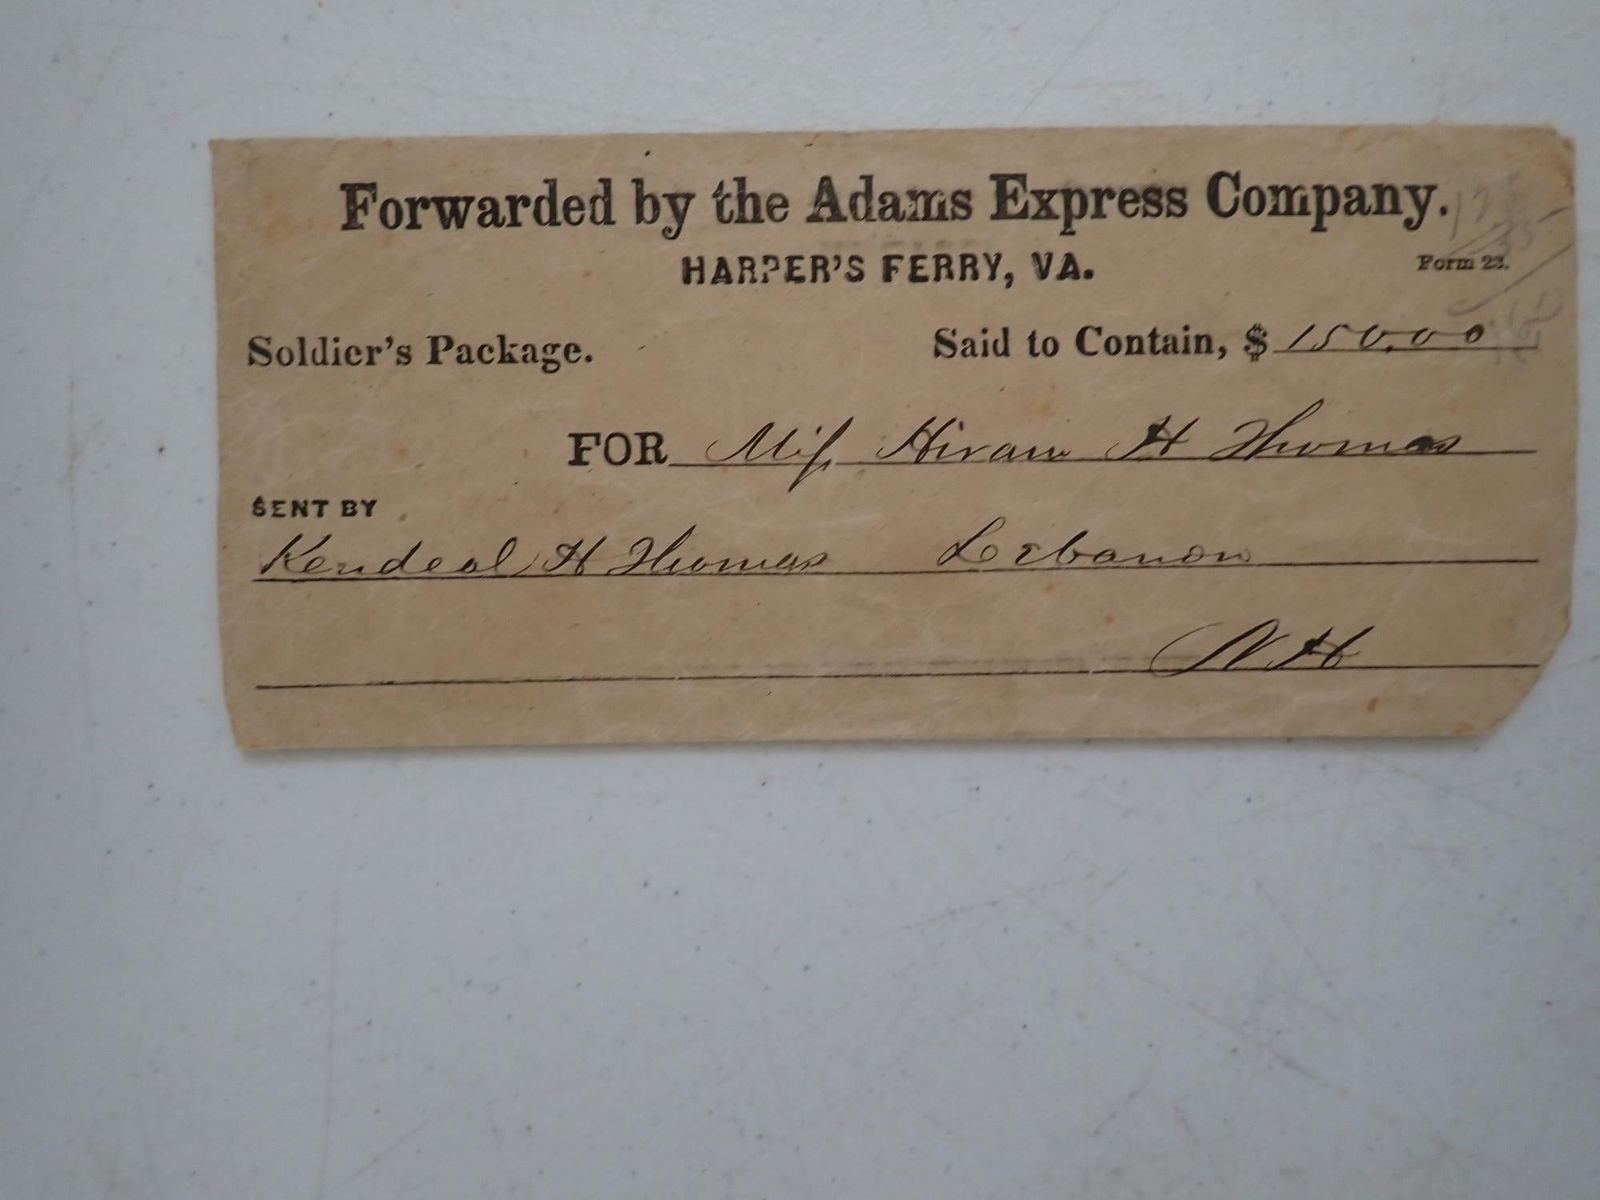 Forwarded by the Adams Express Company.
HARPER'S FERRY, VA.
Form 23.
Soldier's Package. Said to Contain, $ 150.00
FOR Miss Hiram H Thomas
SENT BY
Kendeal H Thomas Lebanon
N H